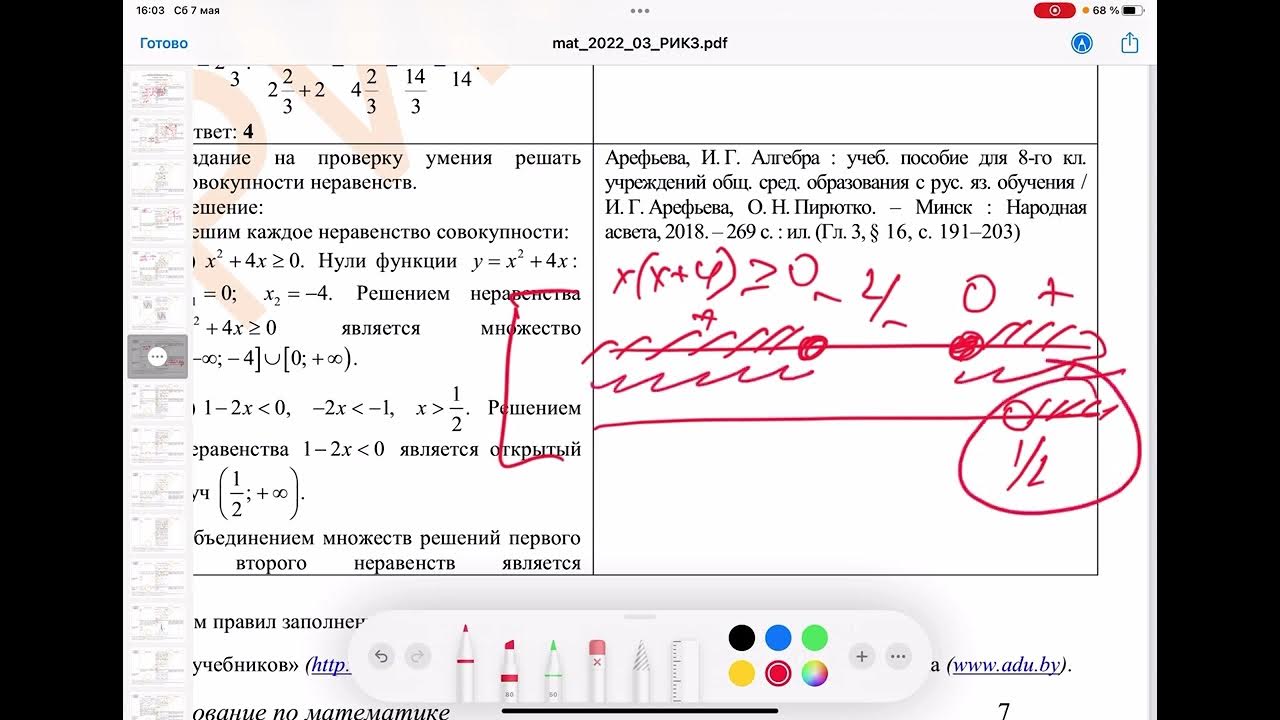 16:03 Сб 7 мая
68 %
Готово
mat_2022_03_РИКЗ.pdf
2 2/3 + 2 4 2/3 14/3 14
твет: 4
адание на проверку умения решать
овокупности неравенств.
ешение:
x² + 4x ≥ 0. Нули функции y = x² + 4x:
= 0; x₂ = −4. Решением неравенства
² + 4x ≥ 0 является множество
−∞; −4] ∪ [0; +∞).
1 − 2x < 0, 1/2. Решением
еравенства 1 − 2x < 0 является открытый
уч (1/2; +∞).
бъединением множеств решений первого
второго неравенств является
Арефьева, И. Г. Алгебра : учеб. пособие для 8-го кл.
учреждений общ. сред. образования с рус. яз. обучения /
И. Г. Арефьева, О. Н. Пирютко. – Минск : Народная
асвета, 2018. – 269 с. : ил. (Гл. 3, § 16, с. 191–203)
x(x+4) ≥ 0
-4 0 +
+
1/2
м правил заполнен
учебников» (http.
а (www.adu.by).
7